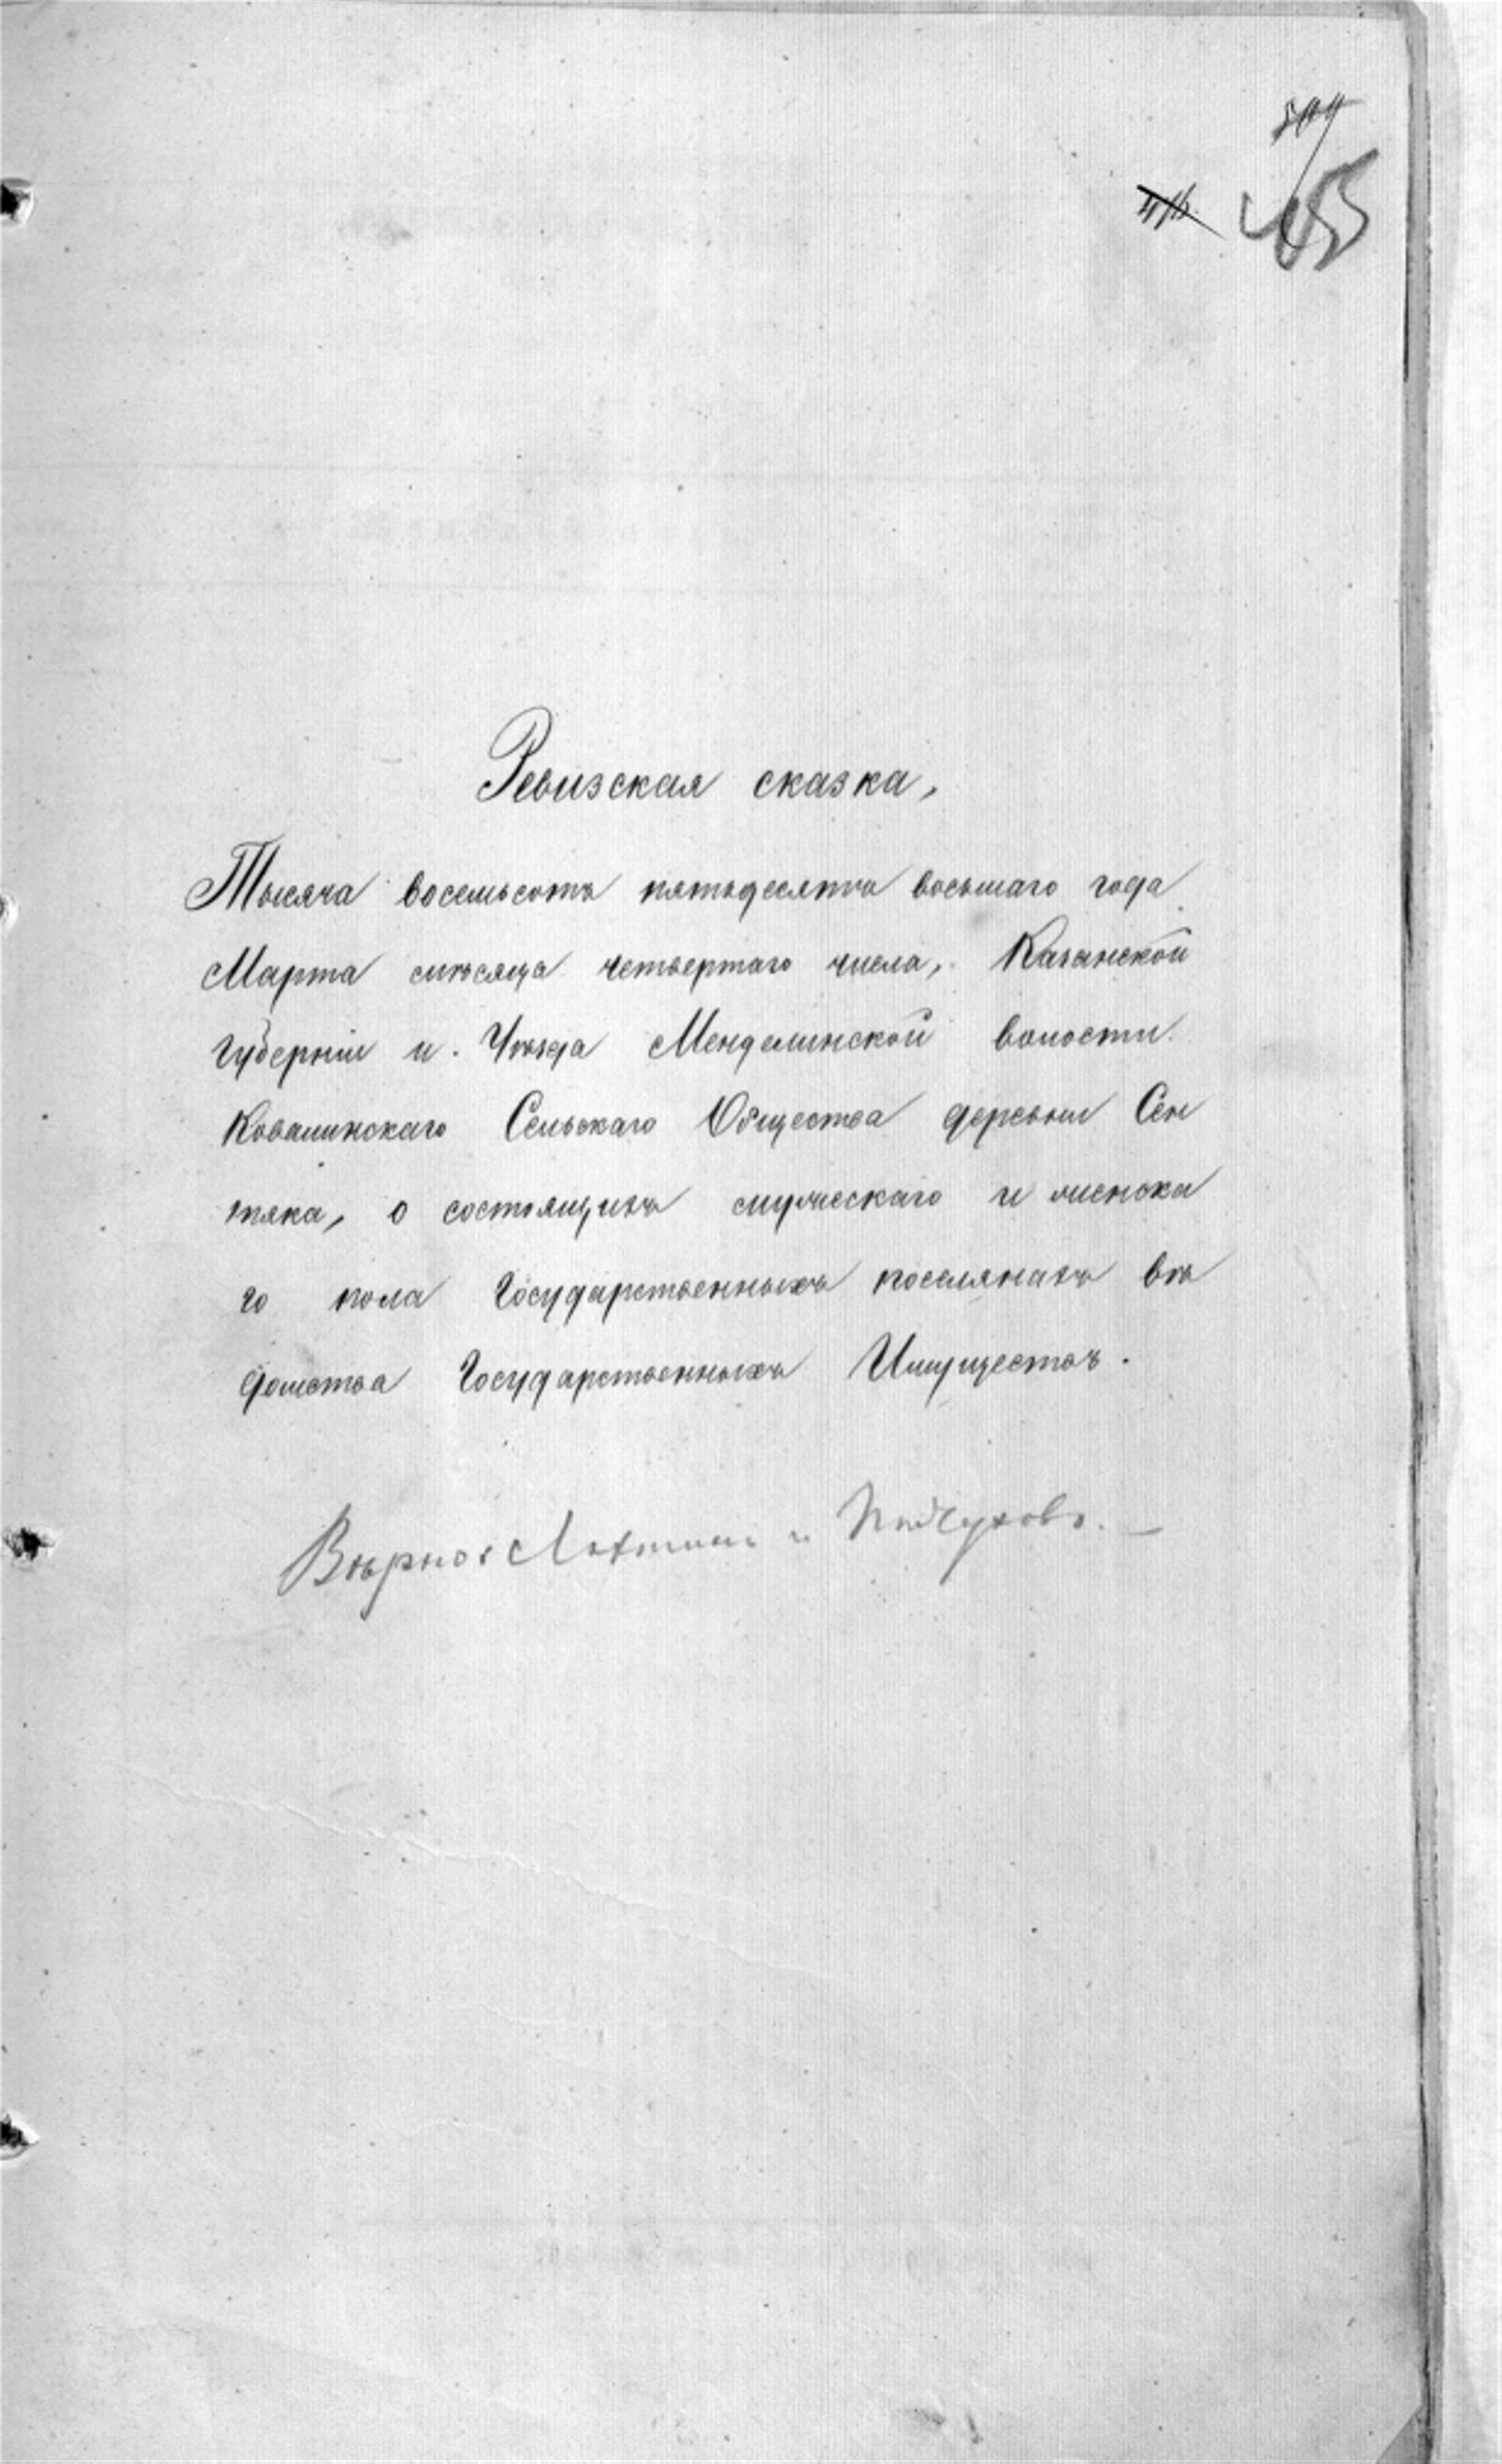 455
Ревизская сказка,
Тысяча восемьсотъ пятьдесятъ восьмаго года
Марта мѣсяца четвертаго числа, Казанской
губерніи и Уѣзда Менделинской волости
Ковалинскаго Сельскаго Общества деревни Сен
тяка, о состоящихъ мужескаго и женска
го пола Государственныхъ поселянахъ вѣ
домства Государственныхъ Имуществъ.
Вѣрно: